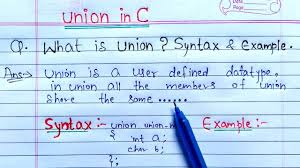 Union in C
Date
Page
Q. What is Union ? Syntax & Example.
Ans→ Union is a user defined datatype.
in union all the members of union
share the same ......
Syntax :- union union-
Example :-
{ int a;
char b;
};